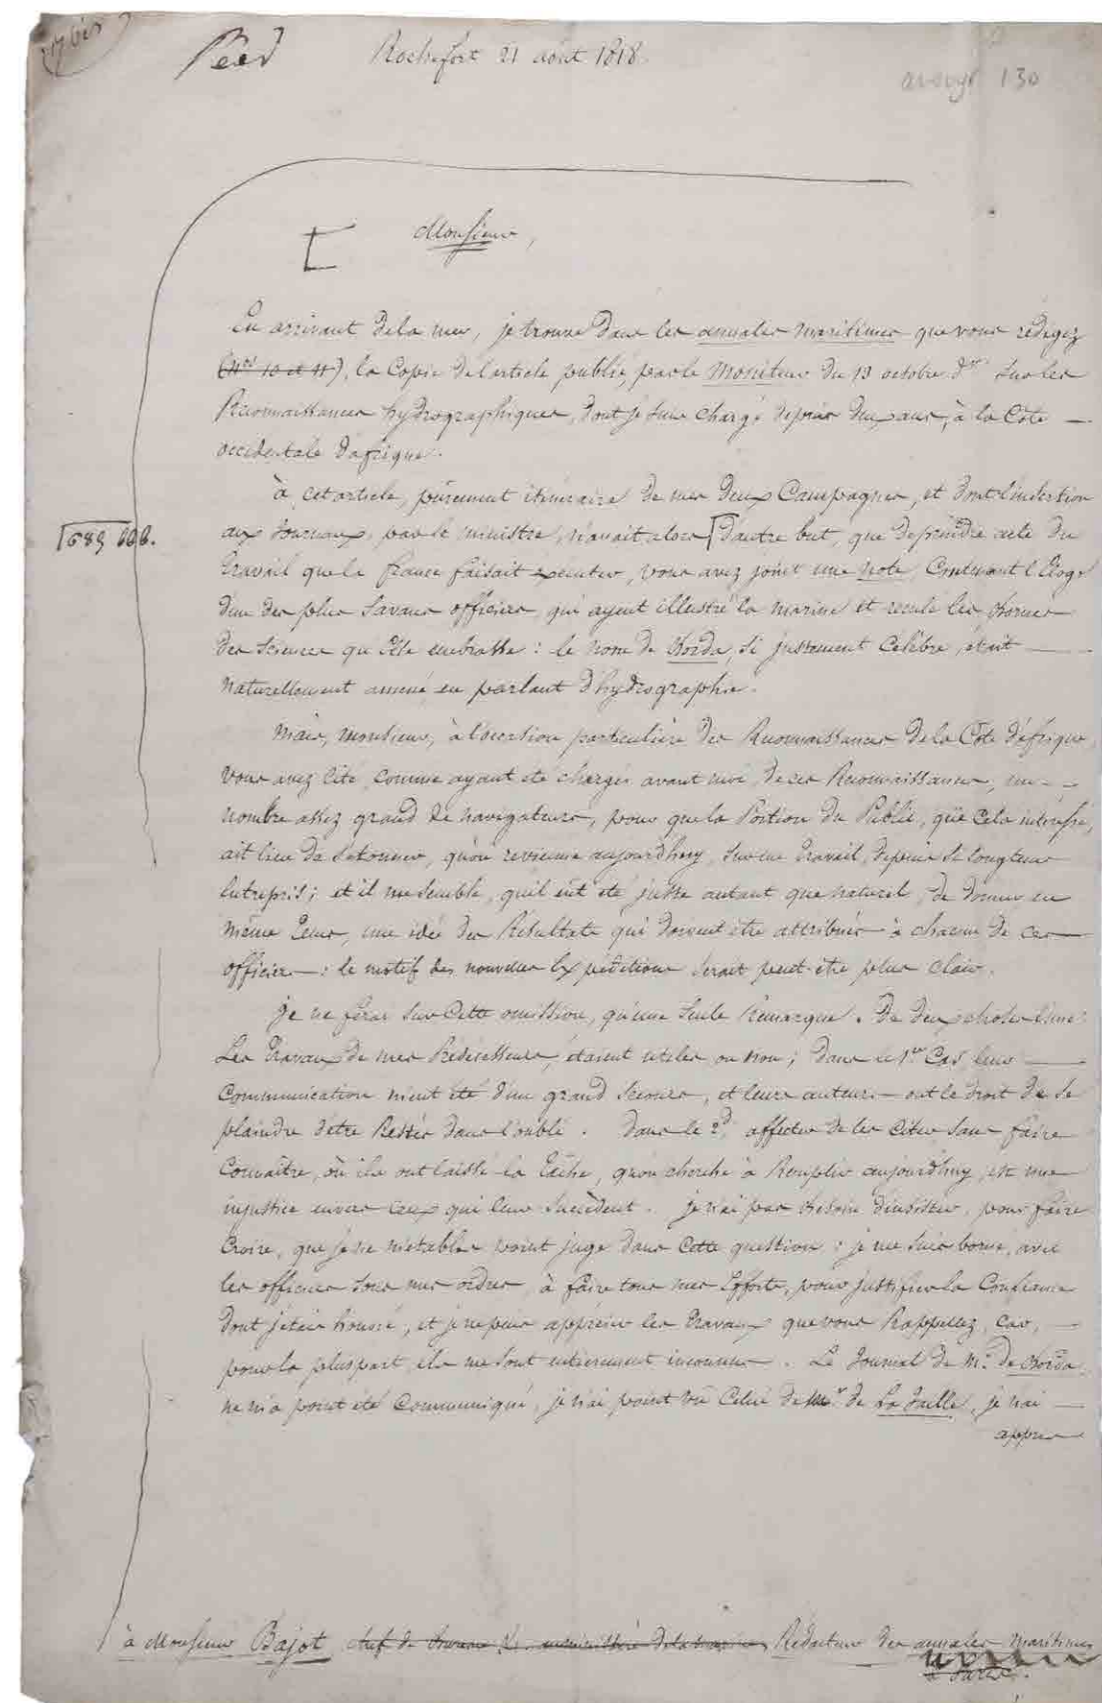 17 bis
Rochefort 21 août 1818
130
Monsieur,
En arrivant dela mer, je trouve dans les annales maritimes que vous rédigez
(Nos 10 et 11), la Copie de l'article publié, par le Moniteur du 13 octobre der sur les
Reconnaissances hydrographiques, dont je suis chargé depuis deux ans, à la Côte
occidentale d'afrique.
à cet article, purement itinéraire de mes deux Campagnes, et dont l'insertion
aux Journaux, par le ministre, n'avait alors d'autre but, que de prendre acte du
689 66b.
travail que la france faisait executer, vous avez joint une note, Contenant l'Eloge
d'un des plus Savans officiers, qui ayent illustré la marine et reculé les bornes
des Sciences qu'Elle embrasse : le nom de Borda, si justement Celèbre, était
naturellement amené en parlant d'hydrographie.
Mais, monsieur, à l'occasion particulière des Reconnaissances de la Côte d'afrique,
vous avez Cité, comme ayant été chargés avant moi, de ces Reconnaissances, un
nombre assez grand de navigateurs, pour que la Portion du Public, que cela intéresse,
ait lieu de S'etonner, qu'on revienne aujourd'huy, sur un travail, depuis si longtems
Entrepris; et il me semble, qu'il eût été juste autant que naturel, de donner en
même tems, une idée des Résultats qui doivent être attribués à chacun de ces
officiers : le motif des nouvelles Expéditions serait peut-être plus clair.
je ne ferai sur Cette omission, qu'une Seule Remarque. De deux choses L'une :
Les Travaux de mes Prédécesseurs, étaient utiles ou non; dans le 1er Cas leur
Communication m'eut été d'un grand Secours, et leurs auteurs ont le droit de se
plaindre d'etre Restés dans l'oubli. Dans le 2d affecter de les Citer sans faire
Connaître, où ils ont laissé la Tâche, qu'on cherche à Remplir aujourd'huy, est une
injustice envers ceux qui leur Succèdent. je n'ai pas besoin d'insister, pour faire
Croire, que je ne m'etablis point juge dans Cette question : je me suis borné, avec
les officiers sous mes ordres, à faire tous mes Efforts, pour justifier la Confiance
dont j'étais honoré, et je ne puis apprécier les Travaux que vous Rappellez, Car,
pour la pluspart, ils me sont entierement inconnus. Le Journal de Mr. de Borda
ne m'a point été Communiqué, je n'ai point vu Celui de Mr de La Jaille, je n'ai
appris
à Monsieur Bajot chef de Bureau au ministère de la marine, Rédacteur des annales maritimes
à Paris.